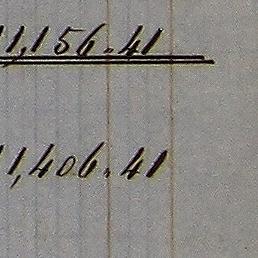 11,156.41
11,406.41